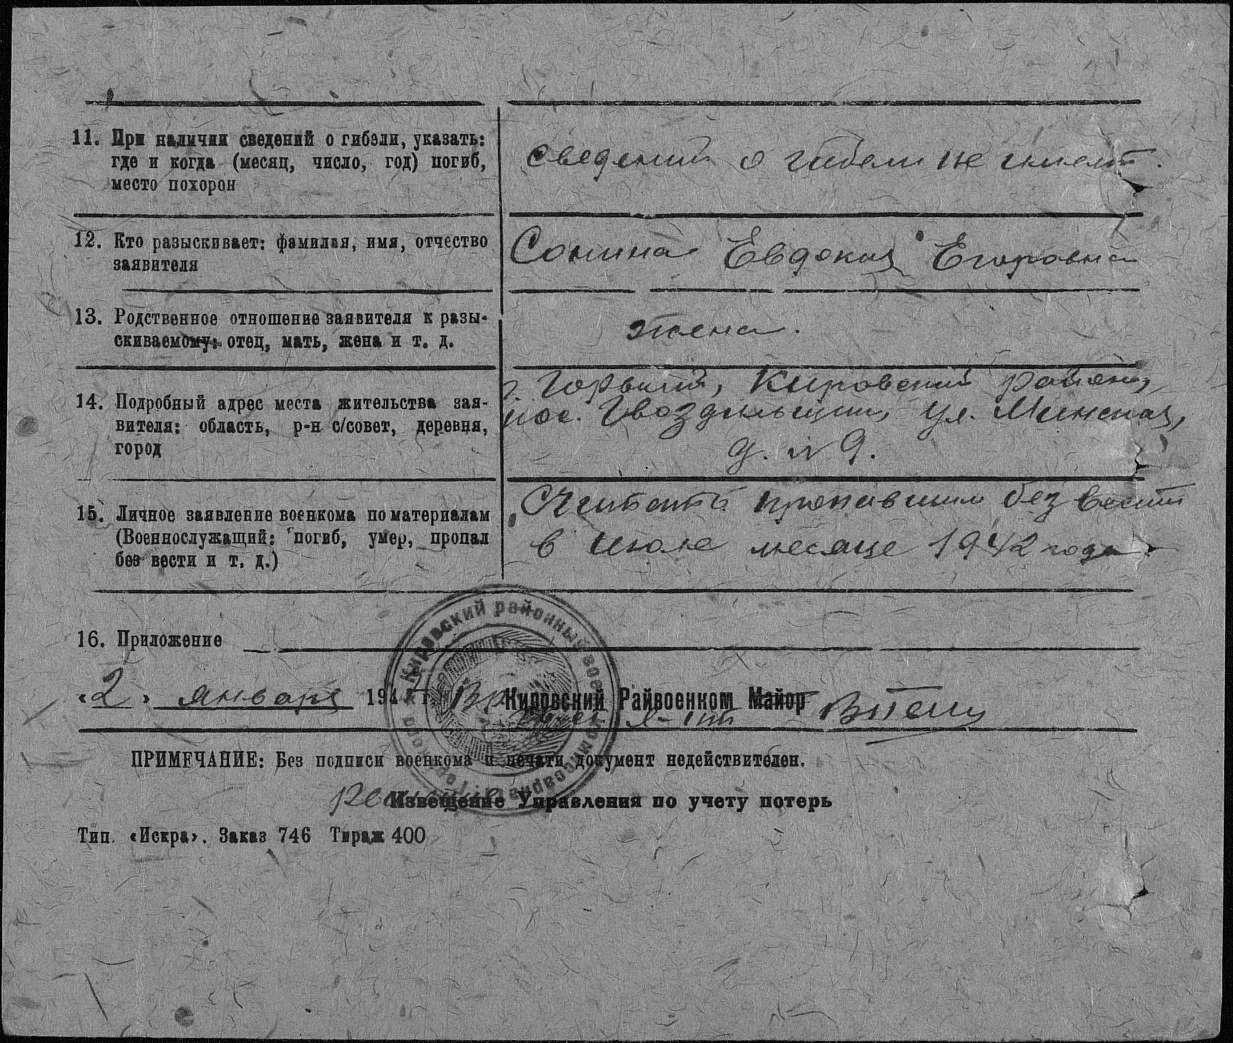 11. При наличии сведений о гибели, указать:
где и когда (месяц, число, год) погиб,
место похорон
сведений о гибели не имеет.
12. Кто разыскивает: фамилия, имя, отчество
заявителя
Сонина Евдокия Егоровна
13. Родственное отношение заявителя к разы-
скиваемому: отец, мать, жена и т. д.
жена.
14. Подробный адрес места жительства зая-
вителя: область, р-н с/совет, деревня,
город
г. Горький, Кировский район,
пос. Гвоздильщик, ул. Минская,
д. № 9.
15. Личное заявление военкома по материалам
(Военнослужащий: погиб, умер, пропал
без вести и т. д.)
Считать пропавшим без вести
в июле месяце 1942 года
16. Приложение
«2» января 194 г. Кировский Райвоенком Майор
Кировский районный военкомиссариат
ПРИМЕЧАНИЕ: Без подписи военкома и печати документ недействителен.
Извещение Управления по учету потерь
Тип. «Искра». Заказ 746 Тираж 400